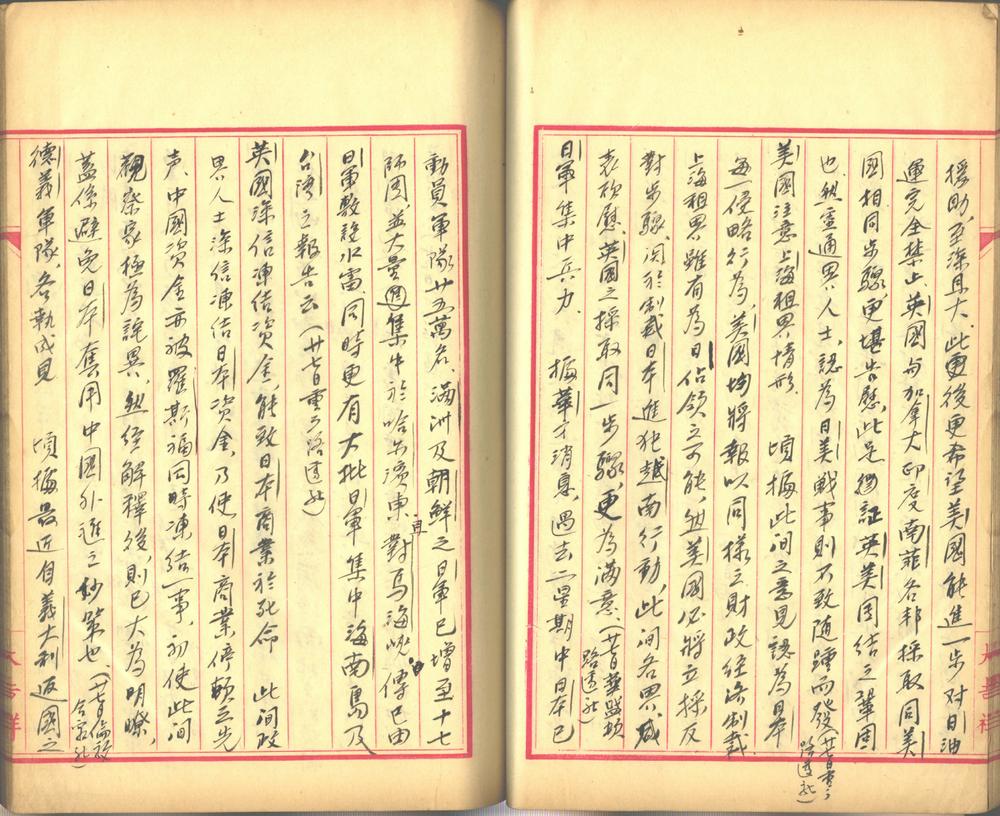 援助，至深且大，此更後更希望美國能進一步对日油
運完全禁止，英國与加拿大印度南菲各邦採取同美
國相同步驟，更堪告慰，此足證証英美团结之鞏固
也，然霊通界人士，認為日美戦事則不致随踵而發，（廿七日重ㄅ
路透社）
美國注意上海租界情形　頃據此间之意見認為日本
每一侵略行為，美國均將報以同様之財政经济制裁
上海租界雖有為日佔领之可能，然美國必將立採及
對步驟関於制裁日本進犯越南行動，此间各界咸
表欣慰，英國之採取同一步驟，更為满意，（廿七日華盛頓
路透社）
日軍集中兵力　據華方消息，過去二星期中日本已
動員軍隊廿五萬名，满洲及朝鮮之日軍已增至十七
師团，並大量週集中於哈尔濱東對馬海峽傳已由
日軍敷設水雷，同時更有大批日軍集中海南島及
台湾之報告云（廿七日重ㄅ路透社）
英國深信凍结资金，能致日本商業於死命　此间政
界人士深信凍结日本资金，乃使日本商業停頓之先
声，中國资金亦被羅斯福同時凍结一事，初使此间
觀察家極為詫異，然经解釋後，則已大為明瞭，
蓋係避免日本奪用中國外滙之妙策也，（廿七日倫敦
合衆社）
德義軍隊，各執成見　頃據最近自義大利返國之